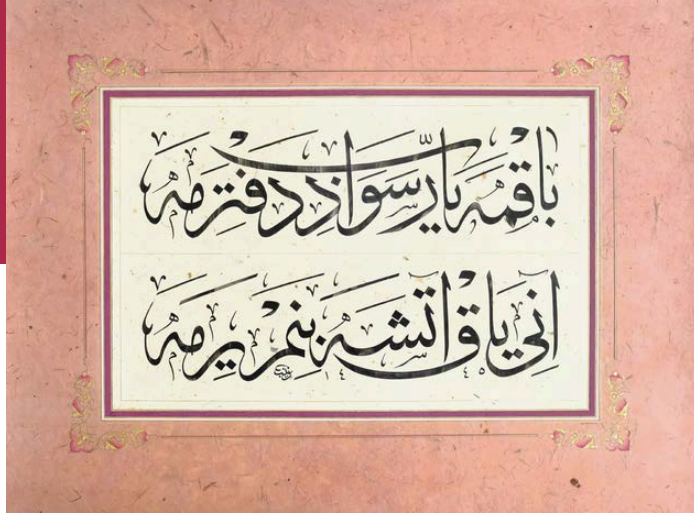 باقمه يا رب سواد دفترمه
انى ياق آتشه بنم يرمه
١٤٤٥